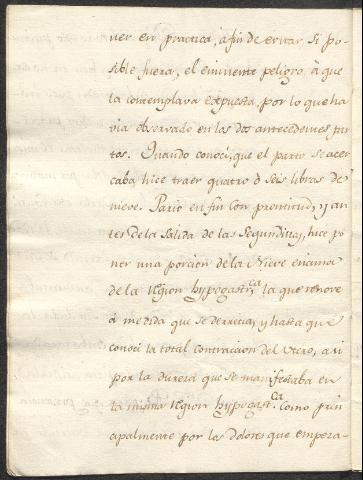 ner en practica, a fin de evitar, si po-
sible fuera, el eminente peligro, à que
la contemplava expuesta, por lo que ha
via observado en las dos antecedentes par
tos. Quando conoci, que el parto se acer
caba, hice traer quatro ò seis libras de
nieve. Pario en fin con prontitud, y an
tes de la salida de las segundinas, hice po
ner una porcion de la Nieve encima
de la Region hypogastr.ca la que renove
à medida que se derretia, y hasta que
conoci la total contraccion del Utero, asi
por la dureza que se manifestaba en
la misma Region hypogast.ca como prin
cipalmente por los dolores que empera-